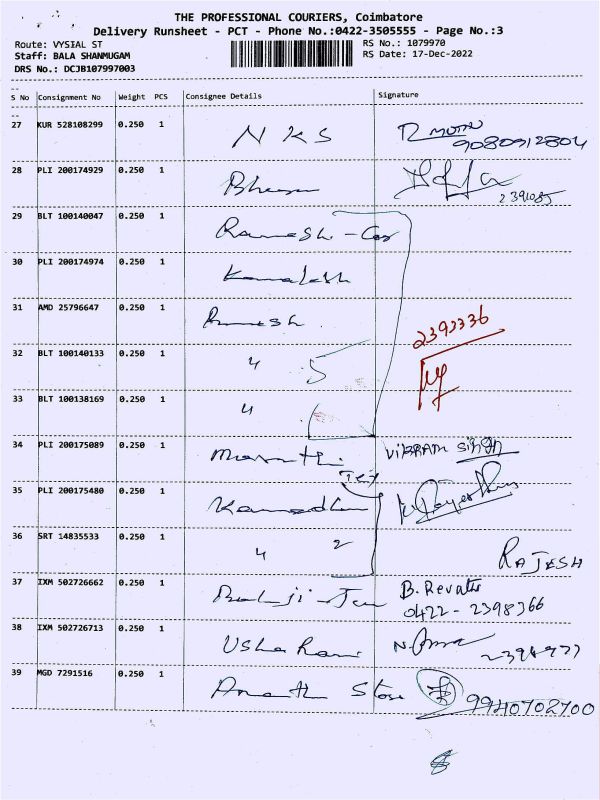 THE PROFESSIONAL COURIERS, Coimbatore
Delivery Runsheet - PCT - Phone No.:0422-3505555 - Page No.:3
Route: VYSIAL ST
Staff: BALA SHANMUGAM
DRS No.: DCJB107997003
RS No.: 1079970
RS Date: 17-Dec-2022
S No Consignment No Weight PCS Consignee Details Signature
27 KUR 528108299 0.250 1 NKS
9080912804
28 PLI 200174929 0.250 1
2391085
29 BLT 100140047 0.250 1 Ramesh - Car
30 PLI 200174974 0.250 1 Kamalesh
31 AMD 25796647 0.250 1 Ramesh
2392336
32 BLT 100140133 0.250 1 " 5
33 BLT 100138169 0.250 1 "
34 PLI 200175089 0.250 1 Maruthi VIKRAM Singh
Tex
35 PLI 200175480 0.250 1 Kamadhenu
36 SRT 14835533 0.250 1 " 2 RAJESH
37 IXM 502726662 0.250 1 Balaji B. Revathi
0422-2398366
38 IXM 502726713 0.250 1 Usha Rani
39 MGD 7291516 0.250 1 Ananth Store 9940702700